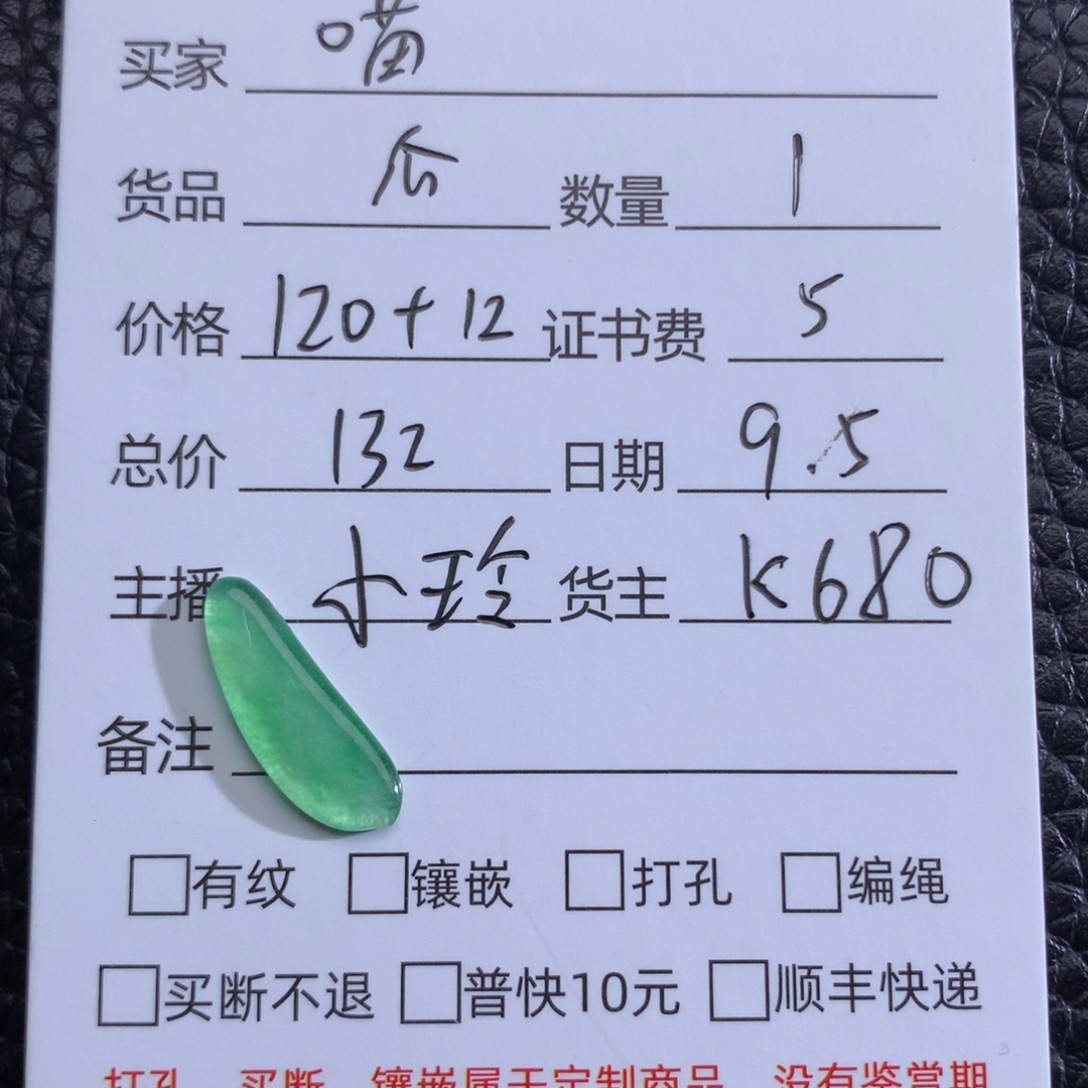 买家 喵
货品 瓜 数量 1
价格 120+12 证书费 5
总价 132 日期 9.5
主播 小玲 货主 K680
备注
□有纹 □镶嵌 □打孔 □编绳
□买断不退 □普快10元 □顺丰快递
打孔、买断、镶嵌属于定制商品，没有鉴赏期